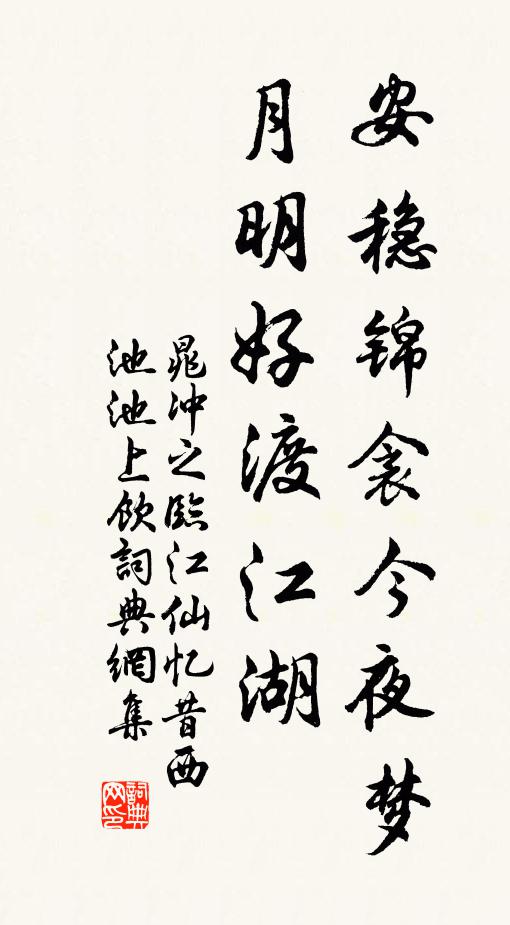 安稳锦衾今夜梦
月明好渡江湖
晁冲之臨江仙忆昔西
池池上飲詞典網集
詞典
网印